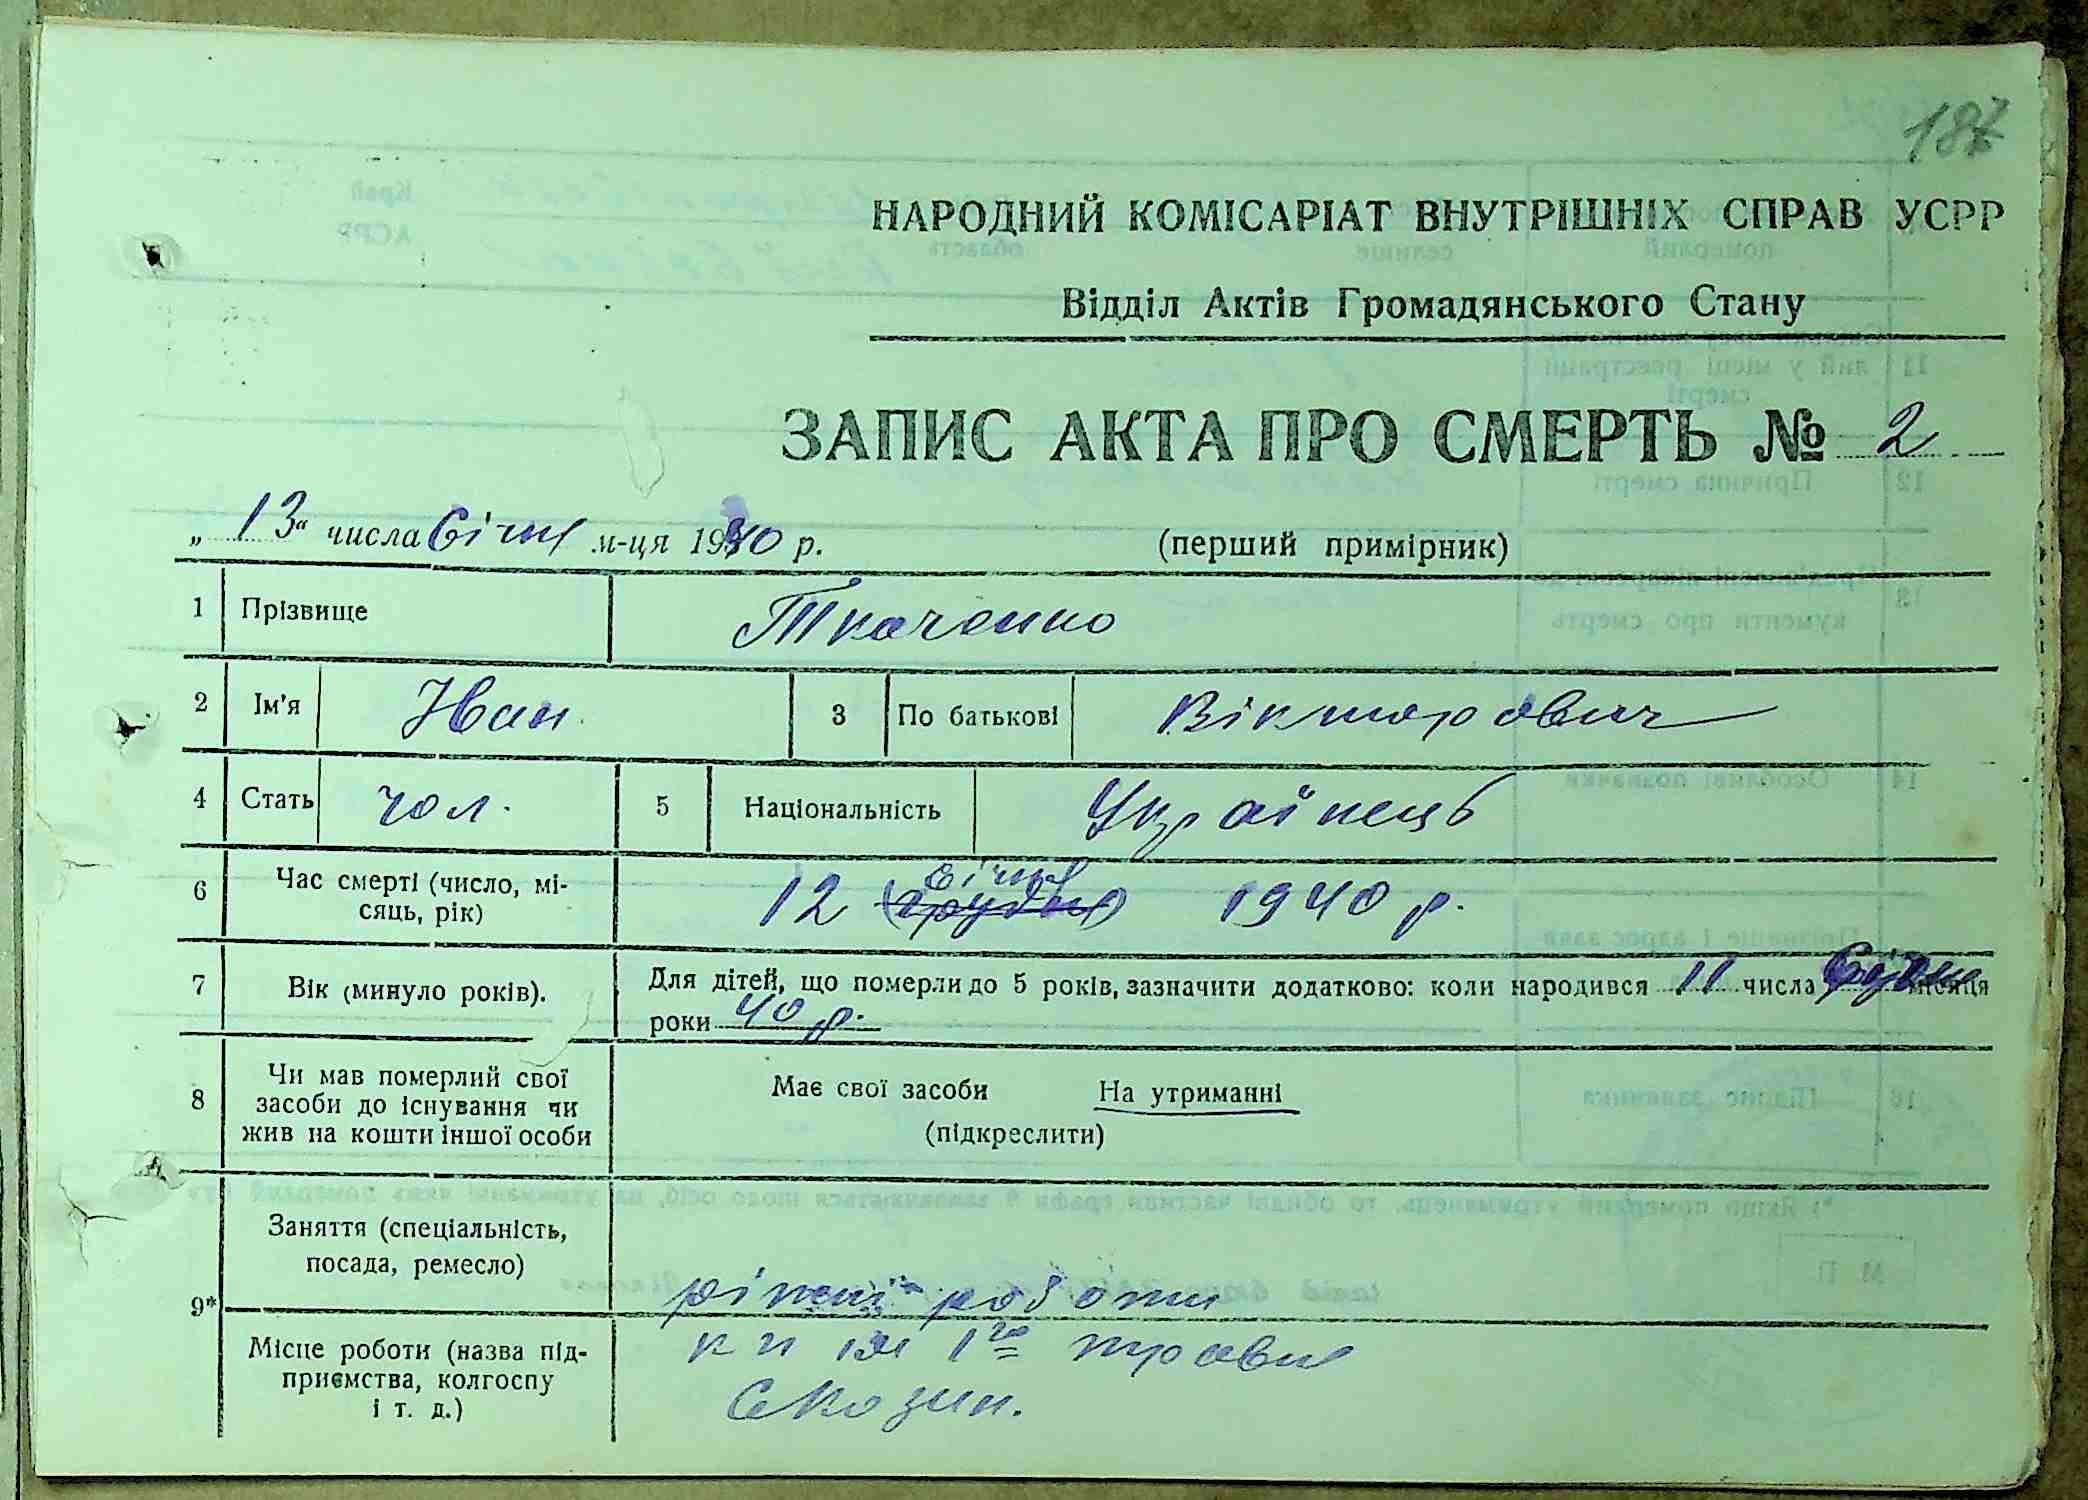 187
НАРОДНИЙ КОМІСАРІАТ ВНУТРІШНІХ СПРАВ УСРР
Відділ Актів Громадянського Стану
ЗАПИС АКТА ПРО СМЕРТЬ № 2
„ 13 “ числа Січня м-ця 1940 р. (перший примірник)
1 Прізвище Ткаченко
2 Ім'я Іван 3 По батькові Вікторович
4 Стать чол. 5 Національність Українець
6 Час смерті (число, мі-
сяць, рік) 12 (грудня) січня 1940 р.
7 Вік (минуло років). Для дітей, що померли до 5 років, зазначити додатково: коли народився 11 числа місяця
роки 40 р.
8 Чи мав померлий свої
засоби до існування чи
жив на кошти іншої особи
Має свої засоби На утриманні
(підкреслити)
9* Заняття (спеціальність,
посада, ремесло) ріжні роботи
Місце роботи (назва під-
приємства, колгоспу
і т. д.)
к г ім 1го травня
с Козин.